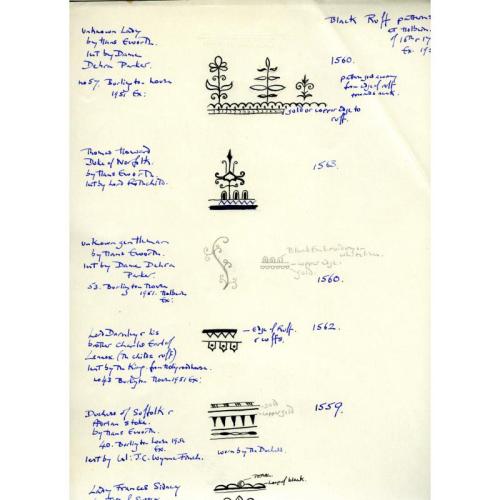 Black Ruff patterns
at Holbein
of 16th & 17
Ex. 19
unknown Lady
by Hans Eworth.
lent by Dame
Dehra Parker.
no 57. Burlington house
1951 Ex:
1560.
pattern goes away
from edge of ruff
towards neck.
gold or copper edge to
ruff.
Thomas Howard
Duke of Norfolk.
by Hans Eworth.
lent by Lord Rothschild.
1563.
unknown gentleman
by Hans Eworth.
lent by Dame Dehra
Parker.
53. Burlington House
1951. Holbein
Ex:
Black Embroidery on
white linen.
upper edge
gold.
1560.
Lord Darnley & his
brother Charles Earl of
Lennox (The child's ruff)
lent by The King. from Holyroodhouse.
no 43 Burlington House 1951 Ex:
- Edge of Ruff.
& cuffs.
1562.
Duchess of Suffolk &
Adrian Stoke.
by Hans Eworth.
40. Burlington house 1951
Ex.
lent by Col: J.C. Wynne-Finch.
gold
gold
1559.
worn by The Duchess.
Lady Frances Sidney
loop of black.